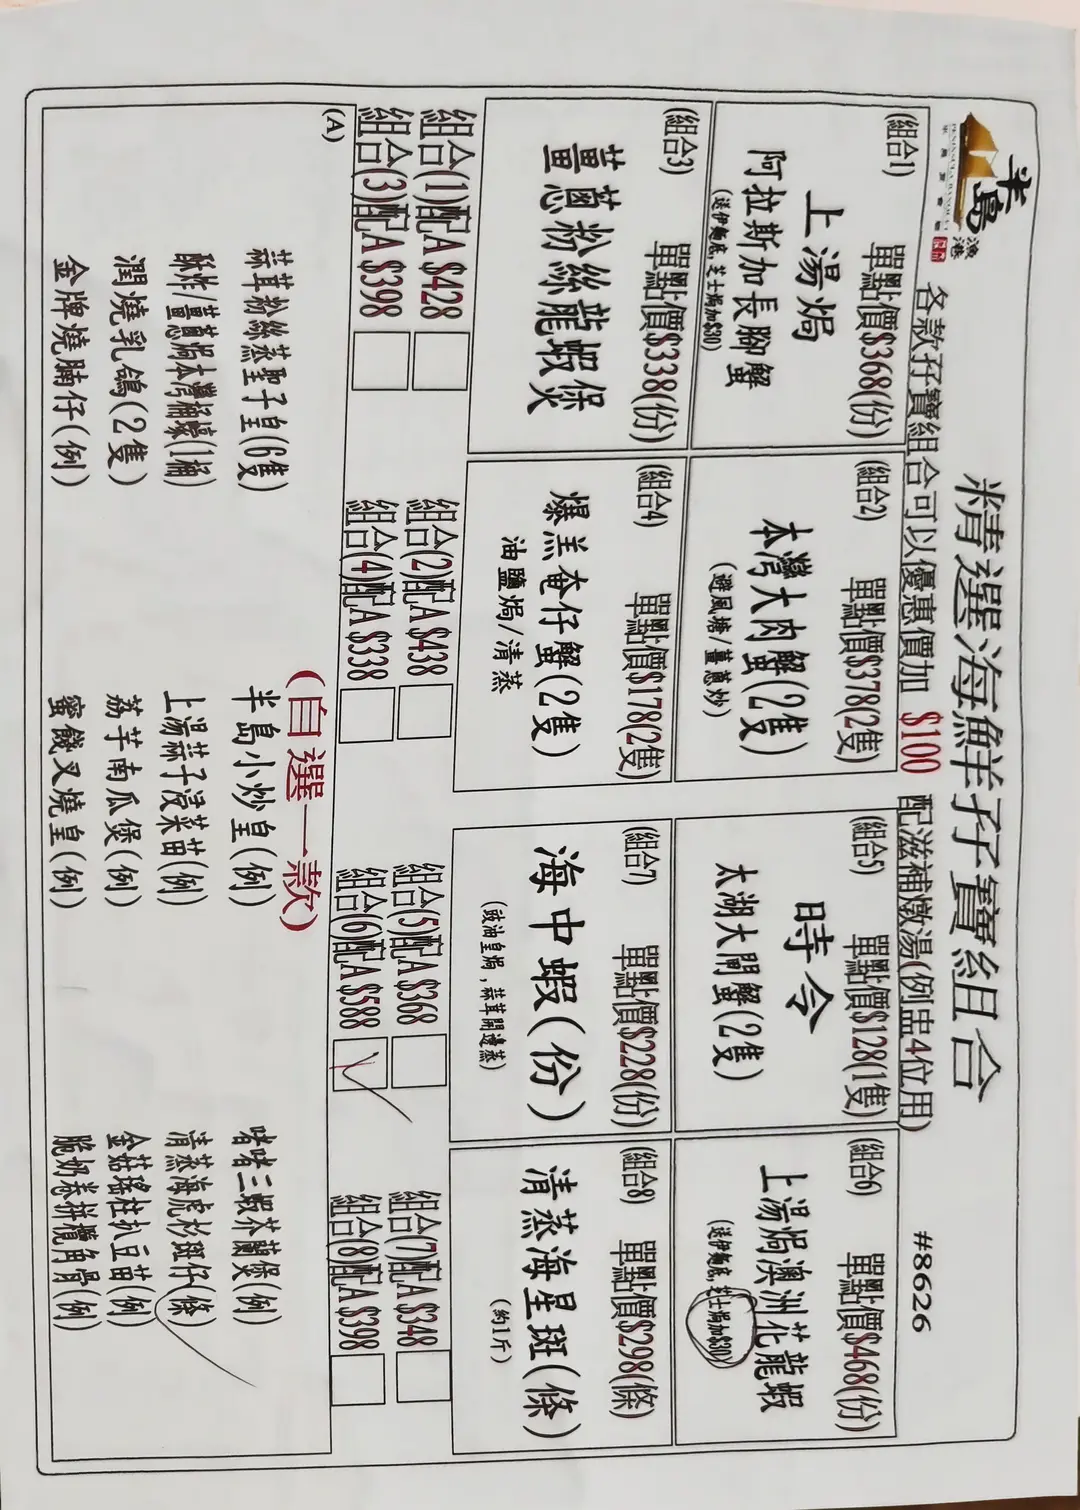 半島
漁港
精選海鮮孖寶組合
各款孖寶組合可以優惠價加 $100 配滋補燉湯(例盅4位用)
#8626
(組合1) 單點價$368(份)
上湯焗
阿拉斯加長腳蟹
(送伊麵底,芝士焗加$30)
(組合2) 單點價$378(2隻)
本灣大肉蟹(2隻)
(避風塘/薑蔥炒)
(組合5) 單點價$128(1隻)
時令
太湖大閘蟹(2隻)
(組合6) 單點價$468(份)
上湯焗澳洲花龍蝦
(送伊麵底,芝士焗加$30)
(組合3) 單點價$338(份)
薑蔥粉絲龍蝦煲
(組合4) 單點價$178(2隻)
爆羔奄仔蟹(2隻)
油鹽焗/清蒸
(組合7) 單點價$228(份)
海中蝦(份)
(豉油皇焗,蒜茸開邊蒸)
(組合8) 單點價$298(條)
清蒸海星斑(條)
(約1斤)
組合(1)配A $428
組合(2)配A $438
組合(5)配A $368
組合(7)配A $348
組合(3)配A $398
組合(4)配A $338
組合(6)配A $588
組合(8)配A $398
(A)
(自選一款)
蒜茸粉絲蒸聖子皇(6隻)
半島小炒皇(例)
啫啫三蝦芥蘭煲(例)
酥炸/薑蔥焗本灣桶蠔(1桶)
上湯蒜子浸菜苗(例)
清蒸海虎杉斑仔(條)
潤燒乳鴿(2隻)
荔芋南瓜煲(例)
金菇瑤柱扒豆苗(例)
金牌燒腩仔(例)
蜜餞叉燒皇(例)
脆奶卷拼欖角骨(例)